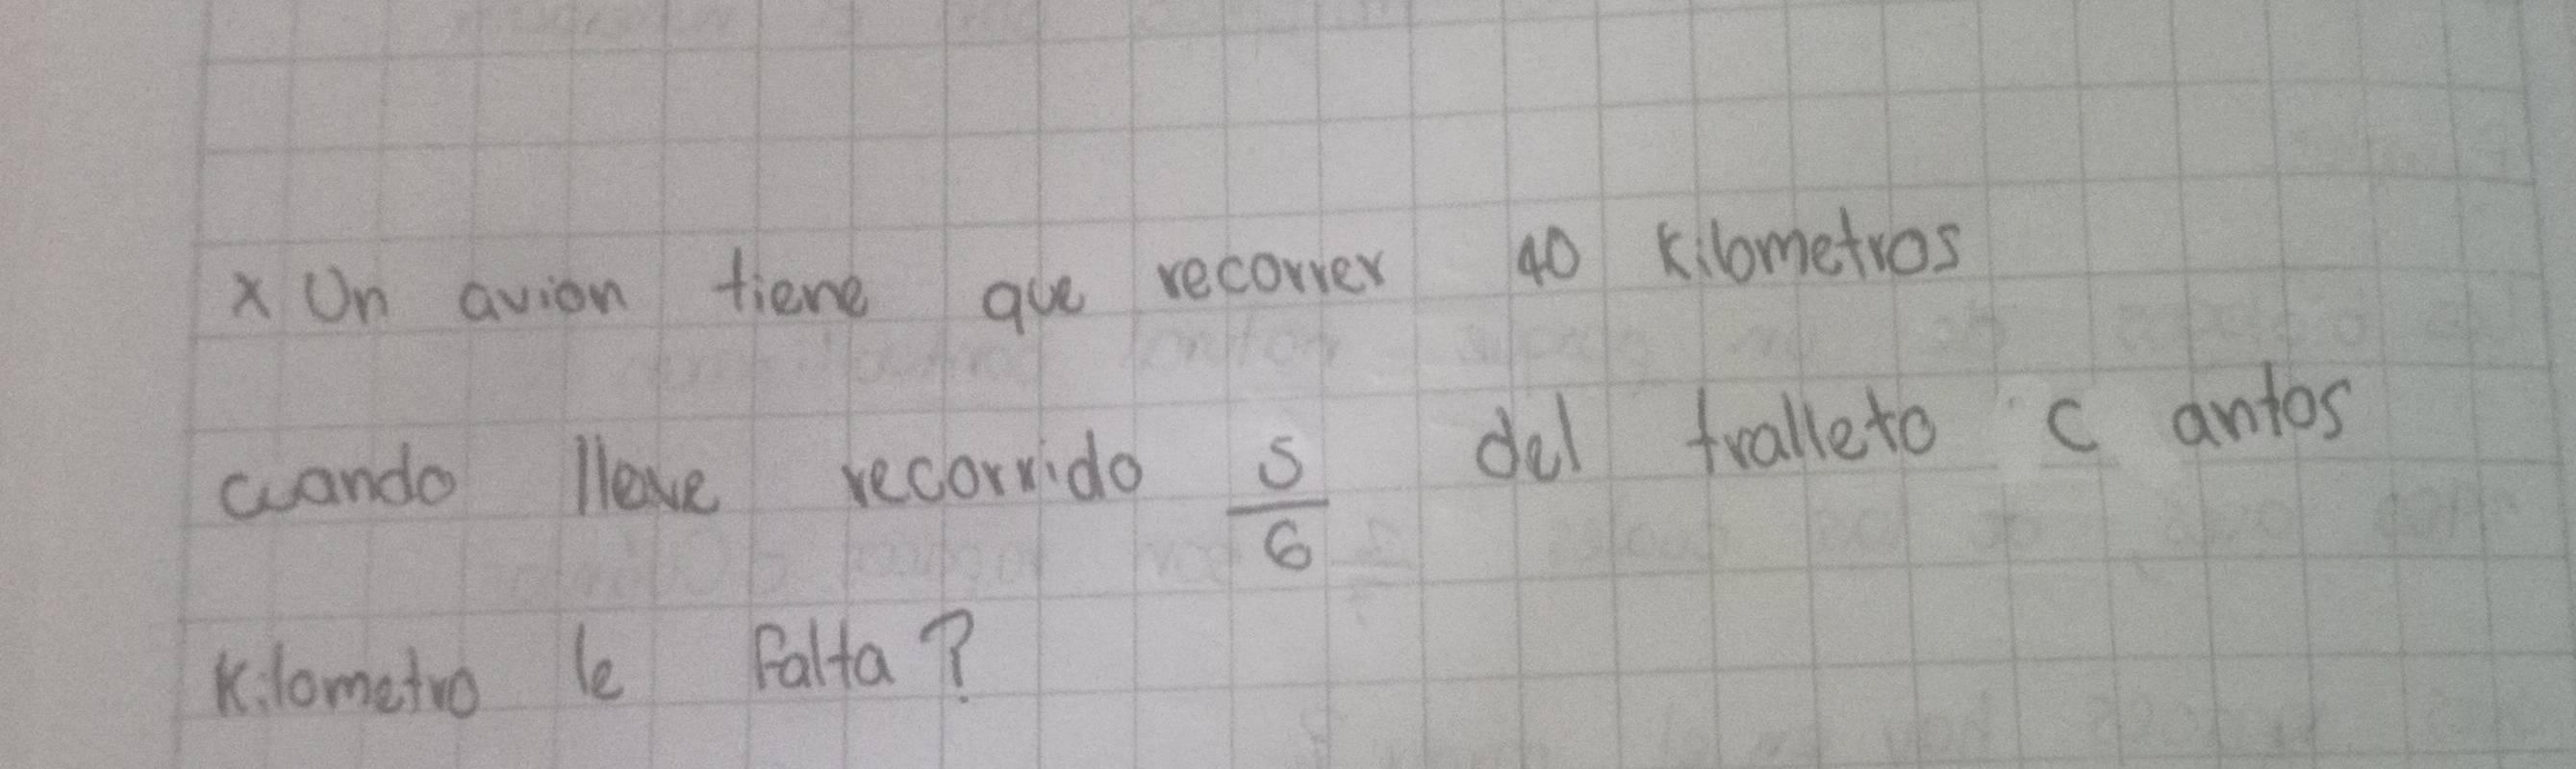 x Un avion tiene que recorrer 40 Kilometros
cuando lleve recorrido 5/6 del tralleto c antos
Kilometro le falta?